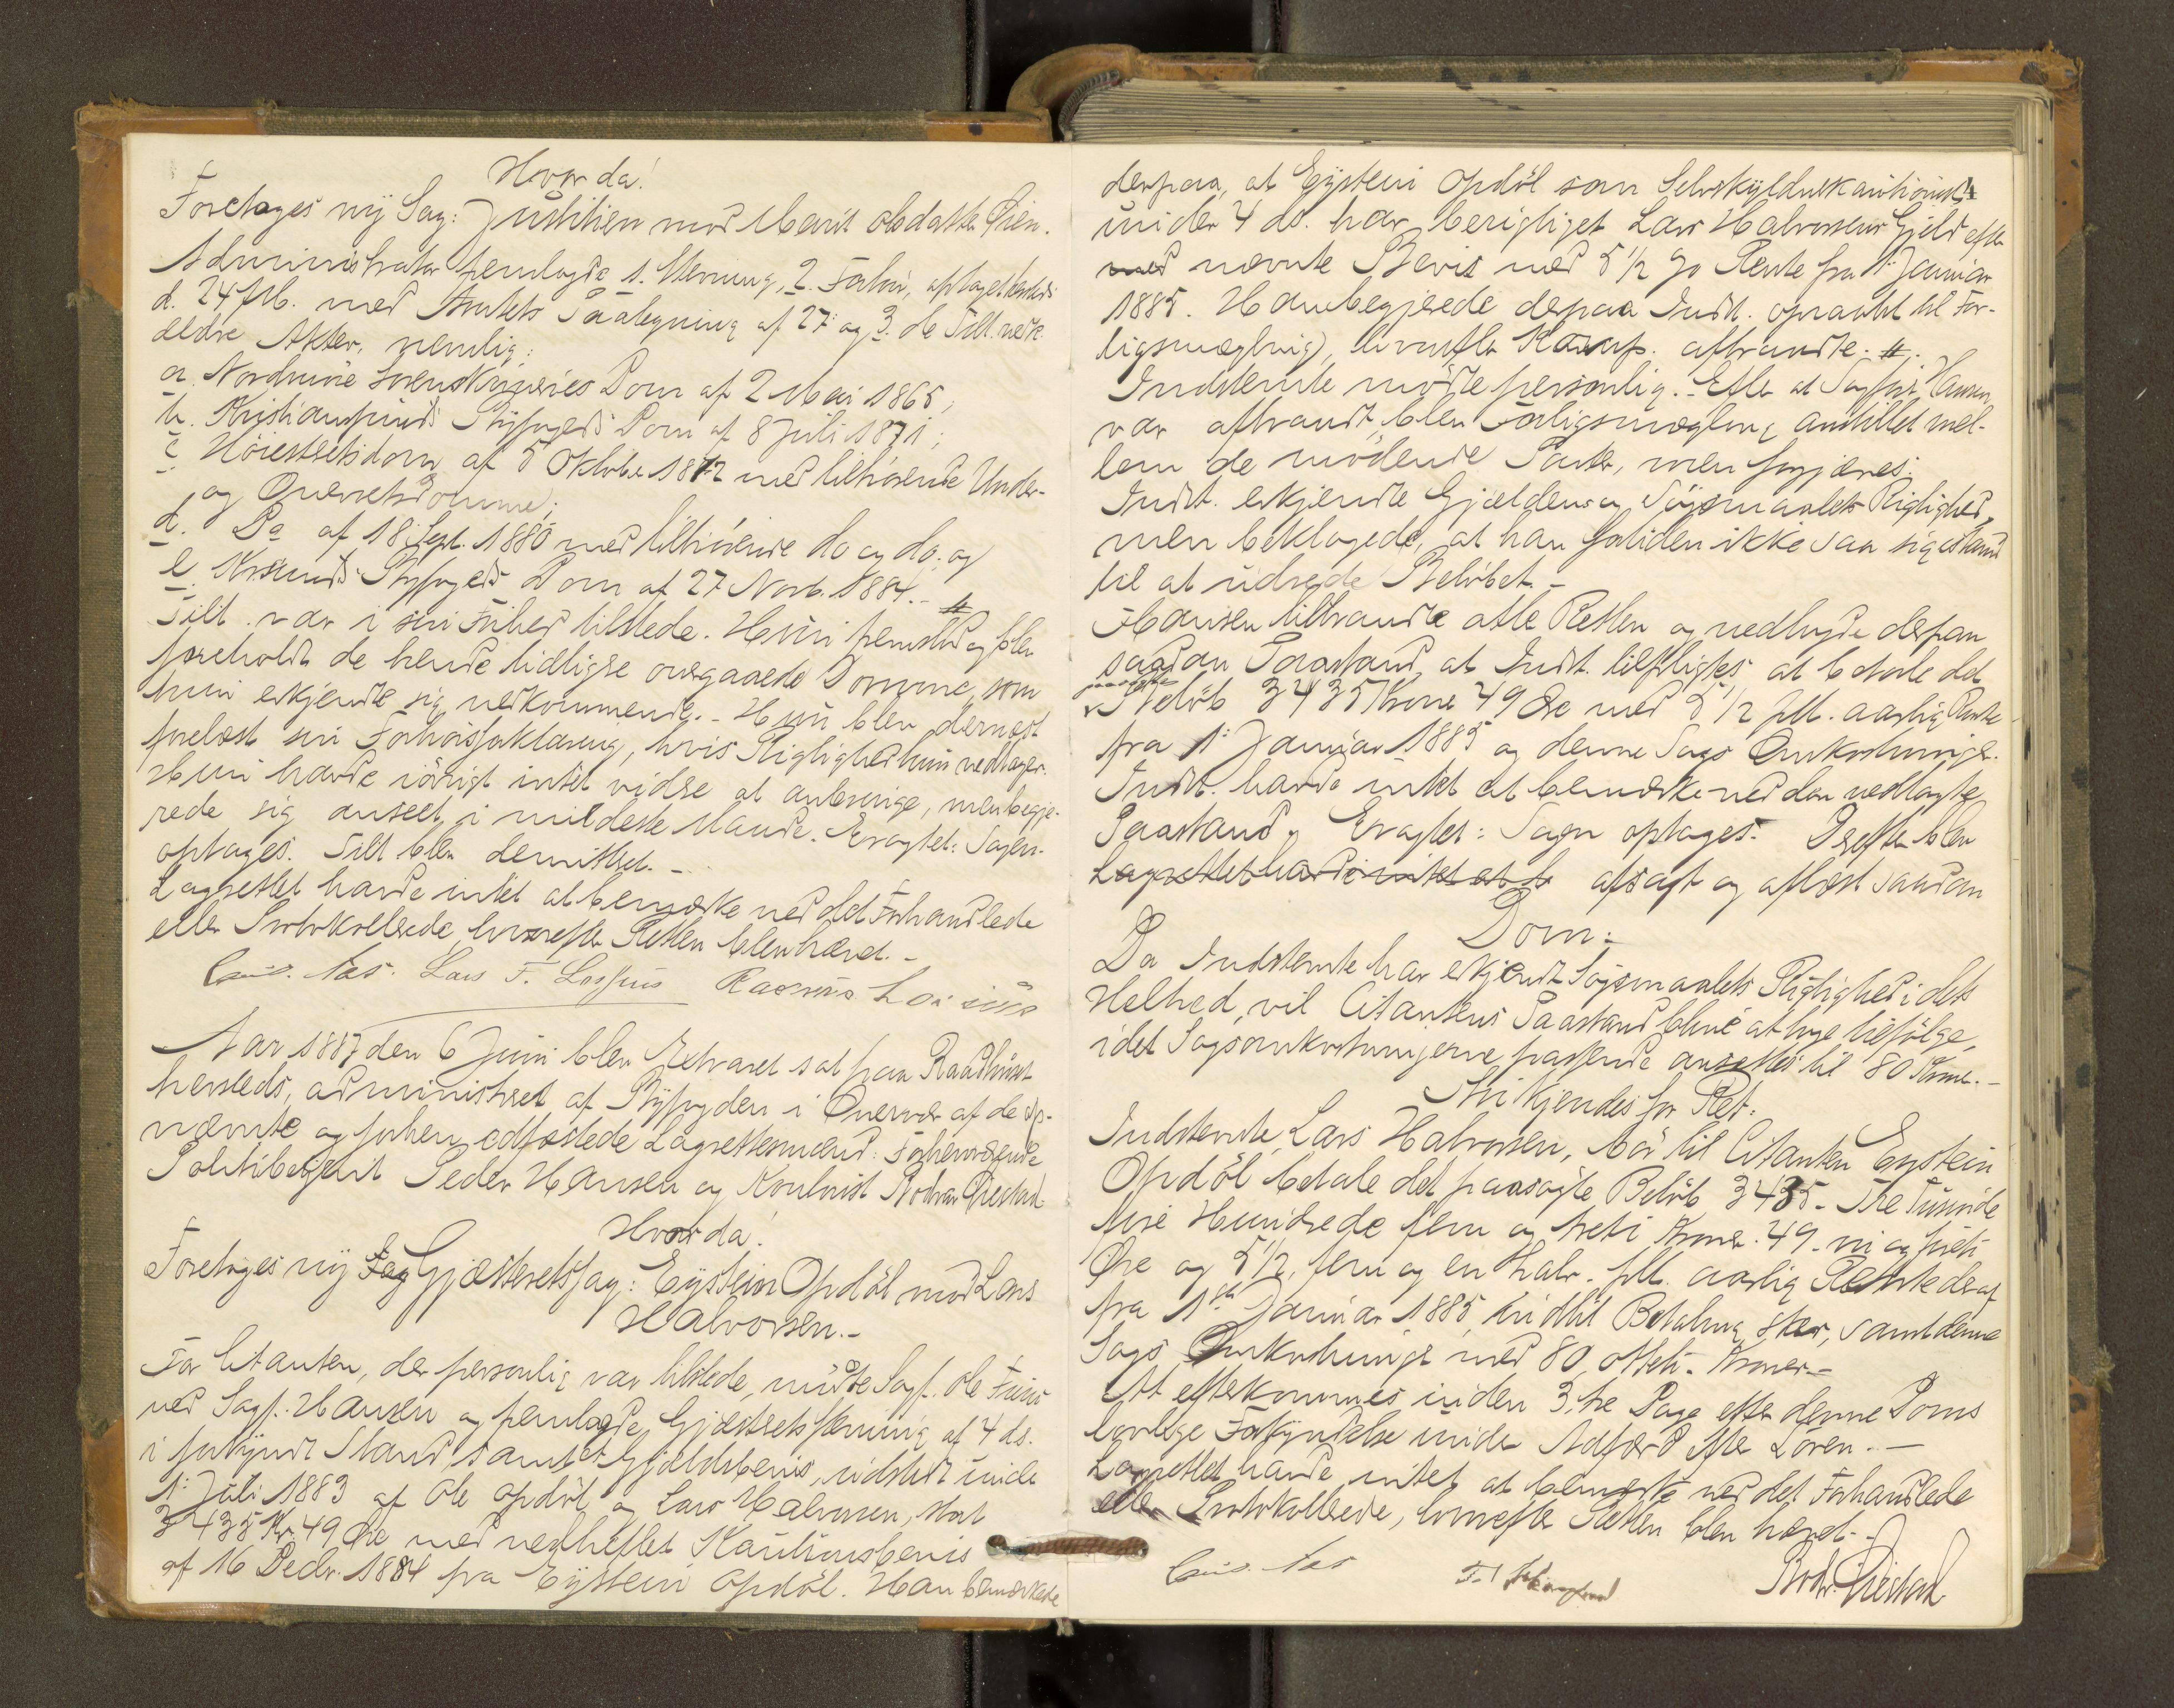 Hvorda!
Foretages ny Sag: Justitien mod Marit Olsdatter Øien.
Administrator fremlagde 1. Stevning, 2. Forhør, optaget
d. 24 f. M. med Amtets Paategning af 27: og 3. de Tilt. vedk.
ældre Akter, nemlig:
a. Nordmøre Sorenskriveries Dom af 2 Mai 1865;
b. Kristiansunds Byfogeds Dom af 8 Juli 1871;
c Høiesteretsdom af 5 Oktober 1872 med tilhørende Under-
og Overretsdomme;
d. Do af 18 Sept. 1880 med tilhørende do og do; og
e Krsunds Byfogeds Dom af 27 Novb. 1884. #
Tilt. var i sin Frihed tilstede. Hun fremstod og blev
foreholdt de hende tidligere overgaaede Domme, som
hun erkjendte sig vedkommende. - Hun blev dernæst
forelæst sin Forhørsforklaring, hvis Rigtighed hun vedtager.
Hun havde iøvrigt intet videre at anbringe, men begjæ-
rede sig anseet i mildeste Maade. Eragtet: Sagen
optages. Tilt blev demitteret. -
Lagrettet havde intet at bemærke ved det Forhandlede
eller Protokollerede, hvorefter Retten blev hævet. -
Lars F. Lossius Rasmus Lossius
Aar 1887 den 6 Juni blev Extraret sat paa Raadhuset
hersteds, administreret af Byfogden i Overvær af de op-
nævnte og forhen edfæstede Lagrettesmænd: Forhenværende
Politibetjent Peder Hansen og Kontorist Brodr. Øiestad
Hvorda!
Foretages ny Sag Gjæsteretssag: Eystein Opdøl mod Lars
Halvorsen. -
For Citanten, der personlig var tilstede, mødte Sagf. Ole
ved Sagf. Hansen og fremlagde Gjæsteretsstevning af 4 ds.
i forkyndt Stand, samt et Gjældsbevis, udstedt under
1: Juli 1883 af Ole Opdöl og Lars Halvorsen, stort
3435 Kr. 49 Øre med vedheftet Kautionsbevis
af 16 Decbr. 1884 fra Eystein Opdöl. Han bemærkede
derpaa, at Eystein Opdöl som Selvskyldnerkautionist
under 4 ds. har berigtiget Lars Halvorsens Gjeld efter
med nævnte Bevis med 5 1/2 % Rente fra 1: Januar
1885. Han begjærede derpaa Indst. opraabt til For-
ligsmægling, hvorefter aftraadte. #.
Indstevnte mødte personlig. - Efter at Sagfører Hansen
var aftraadt, blev Forligsmægling anstillet mel-
lem de mødende Parter, men forgjæves.
Indst. erkjendte Gjældens og Søgsmaalets Rigtighed,
men beklagede, at han fortiden ikke saa sig istand
til at udrede Beløbet. -
Hansen tiltraadte atter Retten og nedlagde derpaa
saadan Paastand, at Indst. tilpligtes at betale det
Beløb 3435 Kroner 49 Øre med 5 1/2 pCt. aarlig Rente
fra 1: Januar 1885 og denne Sags Omkostninger.
Indst. havde intet at bemærke ved den nedlagte
Paastand. Eragtet: Sagen optages. Derefter blev
Lagrettet havde intet at b afsagt og aflæst saadan
Dom:
Da Indstevnte har erkjendt Søgsmaalets Rigtighed i dets
Helhed, vil Citantens Paastand blive at tage tilfølge,
idet Sagsomkostningerne passende ansættes til 80 Kroner. -
Thi kjendes for Ret:
Indstevnte, Lars Halvorsen, bør til Citanten Eystein
Opdöl betale det paasøgte Beløb 3435 - Tre Tusinde
fire Hundrede fem og treti Kroner. 49 - ni og firti
Øre og 5 1/2, fem og en halv, pCt. aarlig Rente deraf
fra 1ste Januar 1885, indtil Betaling sker, samt denne
Sags Omkostninger med 80, otteti - Kroner -
At efterkommes inden 3, tre Dage efter denne Doms
lovlige Forkyndelse under Adfærd efter Loven. -
Lagrettet havde intet at bemærke ved det Forhandlede
eller Protokollerede, hvorefter Retten blev hævet. -
Brodr. Øiestad